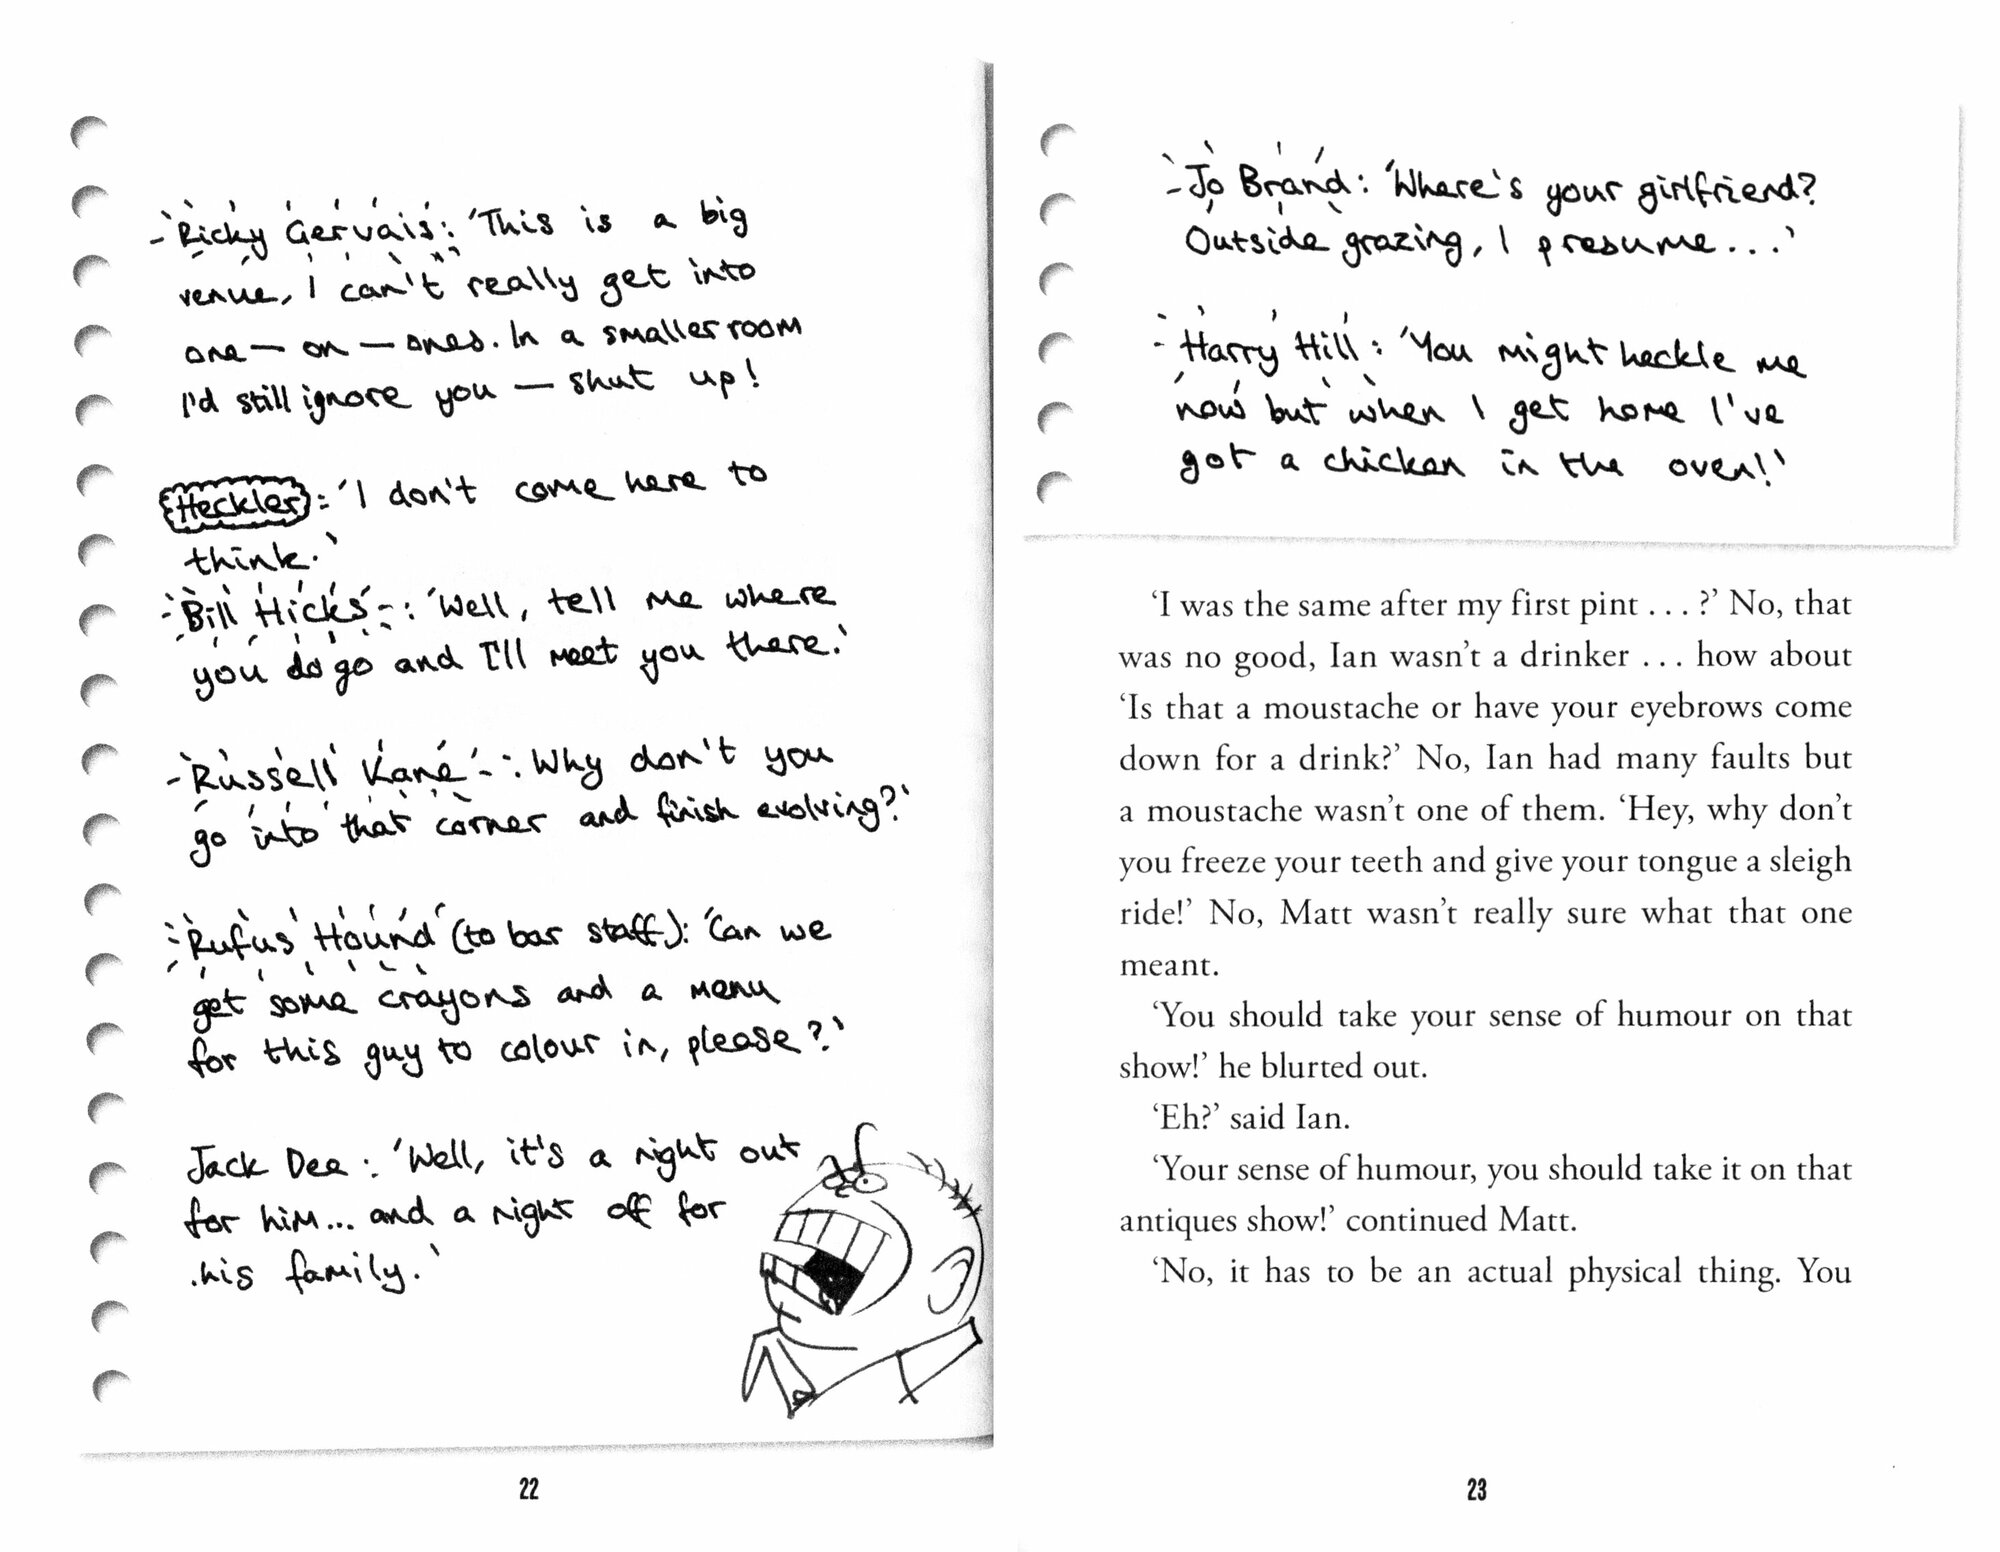 - Ricky Gervais: 'This is a big
venue, I can't really get into
one — on — ones. In a smaller room
I'd still ignore you — shut up!
Heckler: 'I don't come here to
think.'
- Bill Hicks - : 'Well, tell me where
you do go and I'll meet you there.'
- Russell Kane - : Why don't you
go into that corner and finish evolving?'
- Rufus Hound (to bar staff): 'Can we
get some crayons and a menu
for this guy to colour in, please?'
Jack Dee: 'Well, it's a night out
for him... and a night off for
his family.'
22
- Jo Brand: 'Where's your girlfriend?
Outside grazing, I presume...'
- Harry Hill: 'You might heckle me
now but when I get home I've
got a chicken in the oven!'
‘I was the same after my first pint . . . ?’ No, that
was no good, Ian wasn’t a drinker . . . how about
‘Is that a moustache or have your eyebrows come
down for a drink?’ No, Ian had many faults but
a moustache wasn’t one of them. ‘Hey, why don’t
you freeze your teeth and give your tongue a sleigh
ride!’ No, Matt wasn’t really sure what that one
meant.
‘You should take your sense of humour on that
show!’ he blurted out.
‘Eh?’ said Ian.
‘Your sense of humour, you should take it on that
antiques show!’ continued Matt.
‘No, it has to be an actual physical thing. You
23